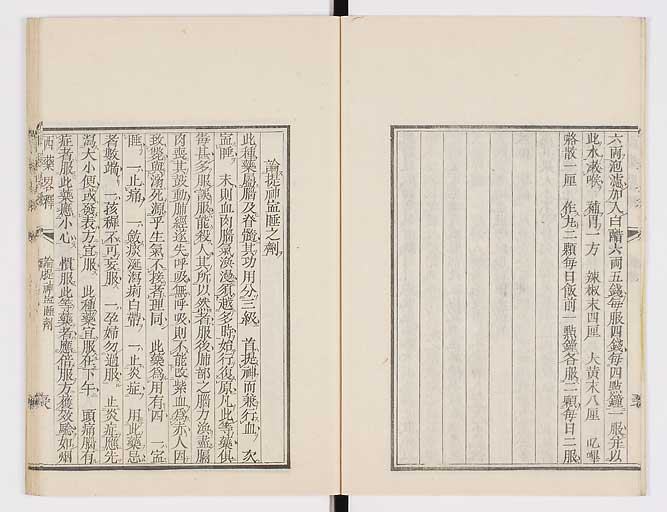 六兩泡濾加入白醋六兩五錢每服四錢每四點鐘一服并以
此水漱喉 補胃一方 辣椒末四厘 大黃末八厘 吃嗶
略散一厘 作丸二顆每日飯前一點鐘各服二顆每日二服
論提神寍睡之劑
此種藥屬腦及脊髓其功用分三級 首提神而兼行血 次
寍睡 末則血肉腦氣渙漫須越多時始行復原凡此等藥俱
毒甚多服誤服能殺人其所以然者服後肺部之腦力渙盡膈
肉喪其鼓動肺經遂失呼吸無呼吸則不能改紫血為赤人因
致斃與溺死凝乎生氣不接者理同 此藥為用有四 一寍
睡 一止痛 一斂痰涎瀉痢白帶 一止炎症 用此藥忌
者數端 一孩穉不可妄服 一孕婦勿過服 止炎症應先
瀉大小便或發表方宜服 此種藥宜服在下午 頭痛腦有
症者服此藥應小心 慣服此等藥者應倍服方獲效驗如烟
西藥畧釋 論提神寍睡劑